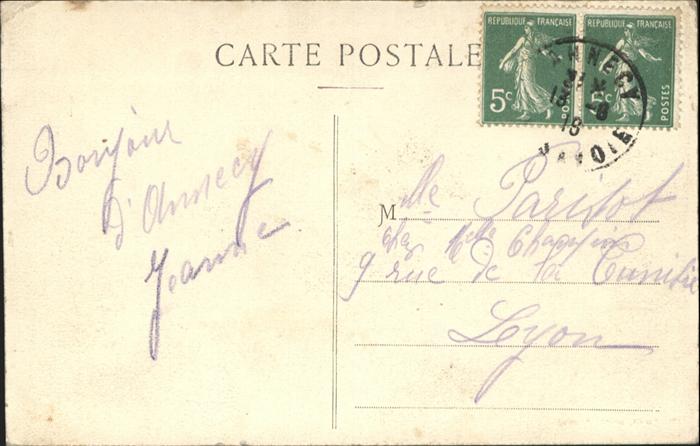 CARTE POSTALE
REPUBLIQUE FRANÇAISE
5c
POSTES
REPUBLIQUE FRANÇAISE
5c
POSTES
ANNECY
18
Bonjour
d'Annecy
Jeanne
M lle
chez Melle
9 rue de la
Lyon